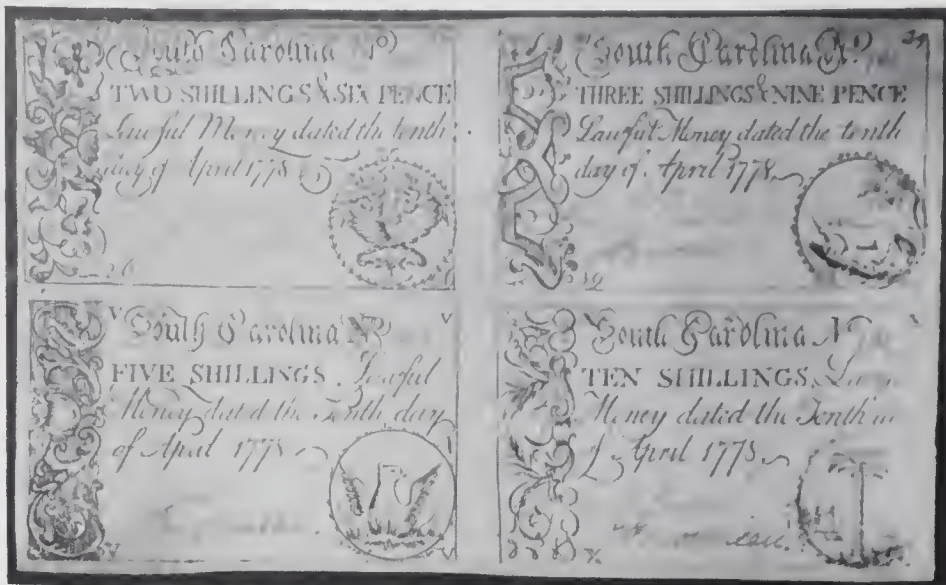 South Carolina No)
TWO SHILLINGS & SIX PENCE
Lawful Money dated the tenth
day of April 1778
26
South Carolina No. 29
THREE SHILLINGS & NINE PENCE
Lawful Money dated the tenth
day of April 1778
39
V South Carolina No V
FIVE SHILLINGS. Lawful
Money dated the Tenth day
of April 1778
V V
South Carolina N
TEN SHILLINGS
Money dated the Tenth
of April 1778
X